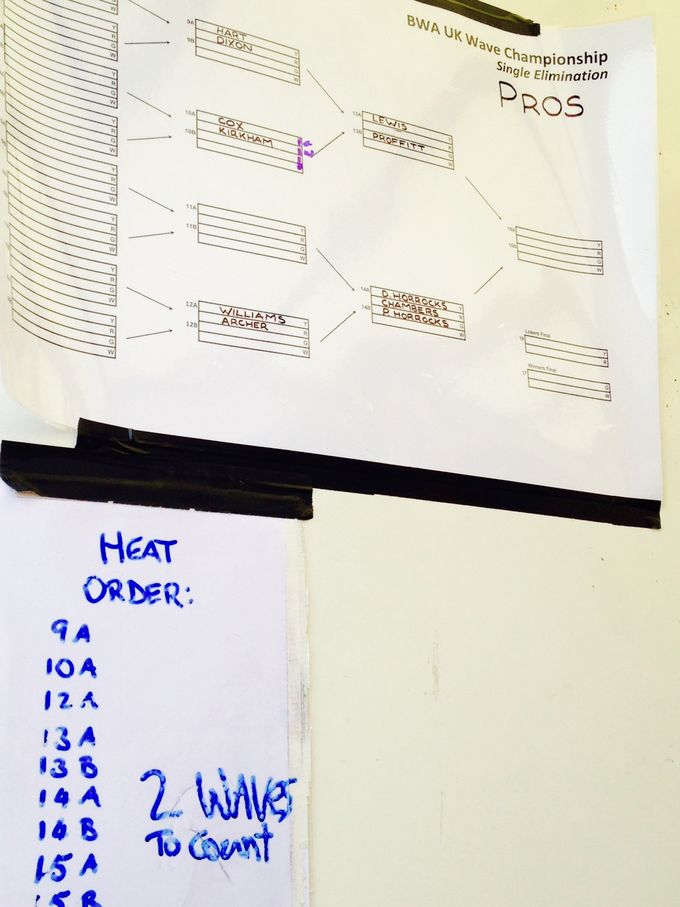 BWA UK Wave Championship
Single Elimination
PROS
9A HART Y
9B DIXON R
G
W
10A COX
10B KIRKHAM
11A Y
11B R
G
W
12A WILLIAMS Y
12B ARCHER R
G
W
13A LEWIS Y
13B PROFFITT R
G
W
14A D. HORROCKS Y
CHAMBERS R
14B P. HORROCKS G
W
15A Y
15B R
G
W
Losers Final
16 Y
R
Winners Final
17 G
W
HEAT
ORDER:
9A
10A
12A
13A
13B
14A
14B
15A
15B
2 WAVES
To Count